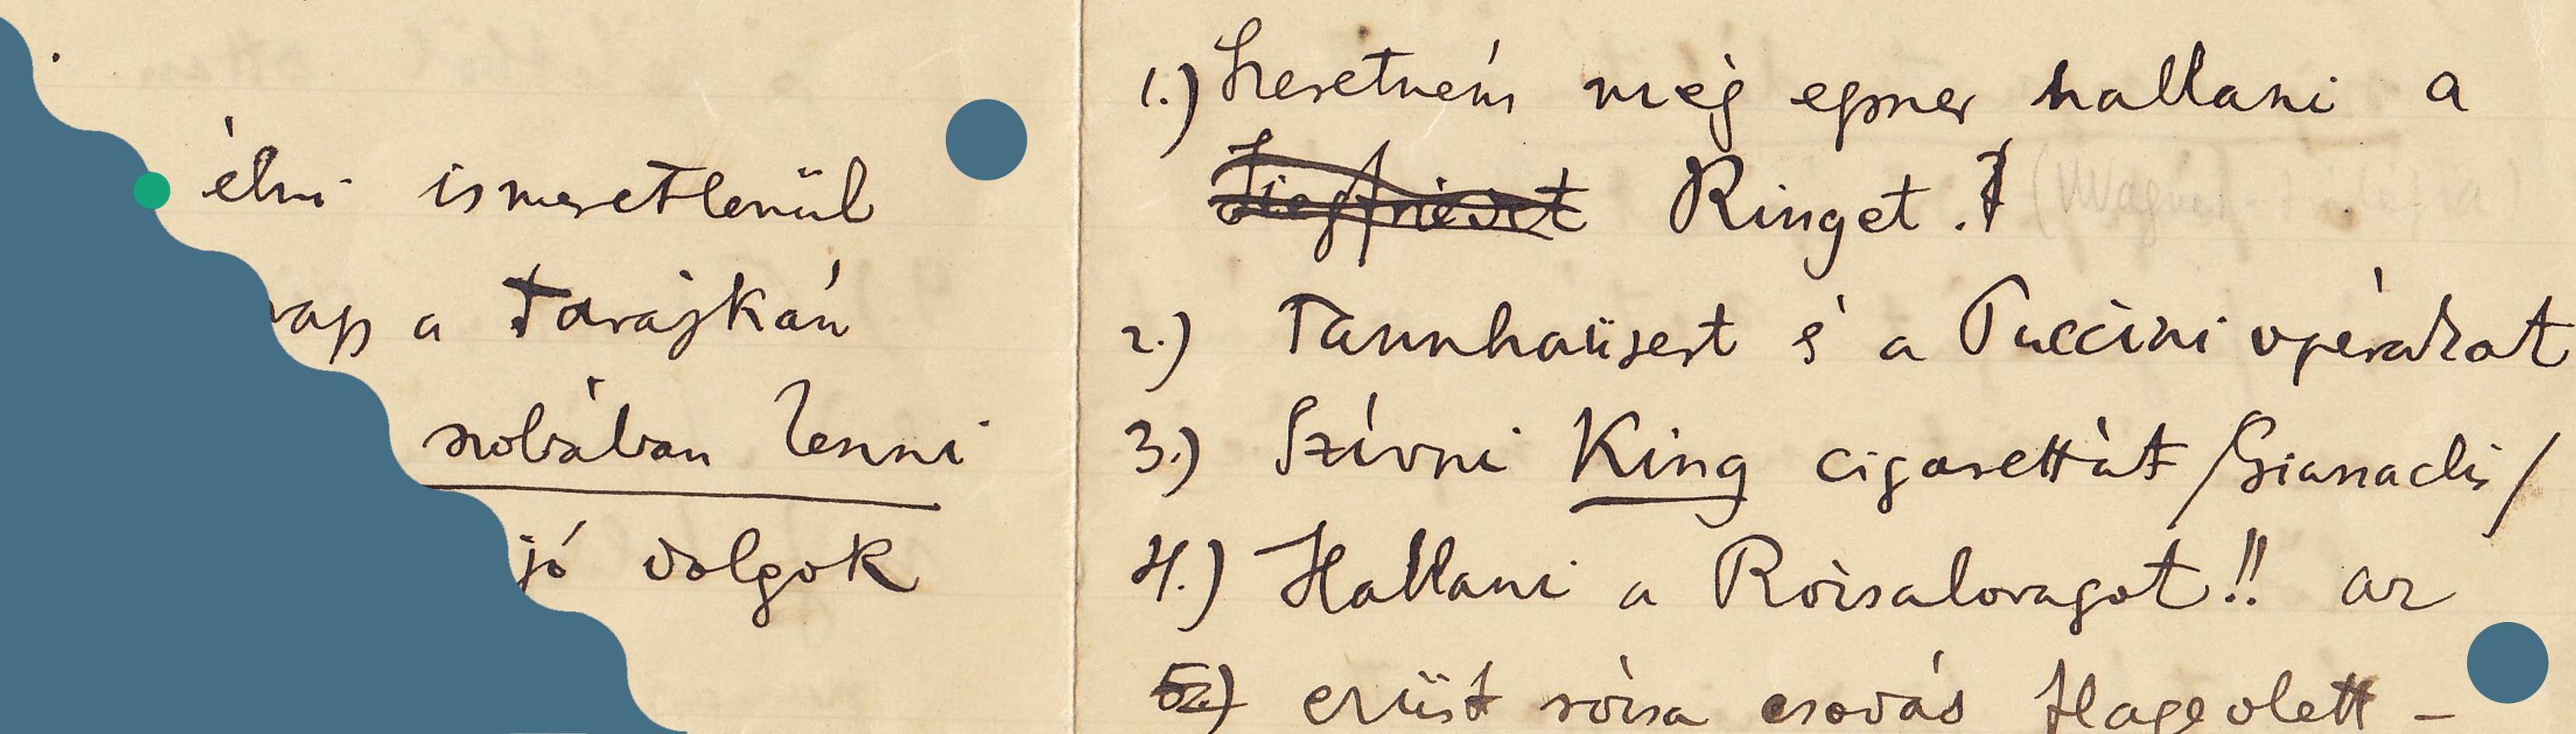 élni ismeretlenül
a Tarajkán
szobában lenni
jó dolgok
1.) Szeretném még egyszer hallani a
Siegfriedet Ringet.
2.) Tannhaüsert és a Puccini operákat
3.) Szívni King cigarettát /Gianaclis/
4.) Hallani a Rózsalovagot!! az
5.) ezüst rózsa csodás flageolett –